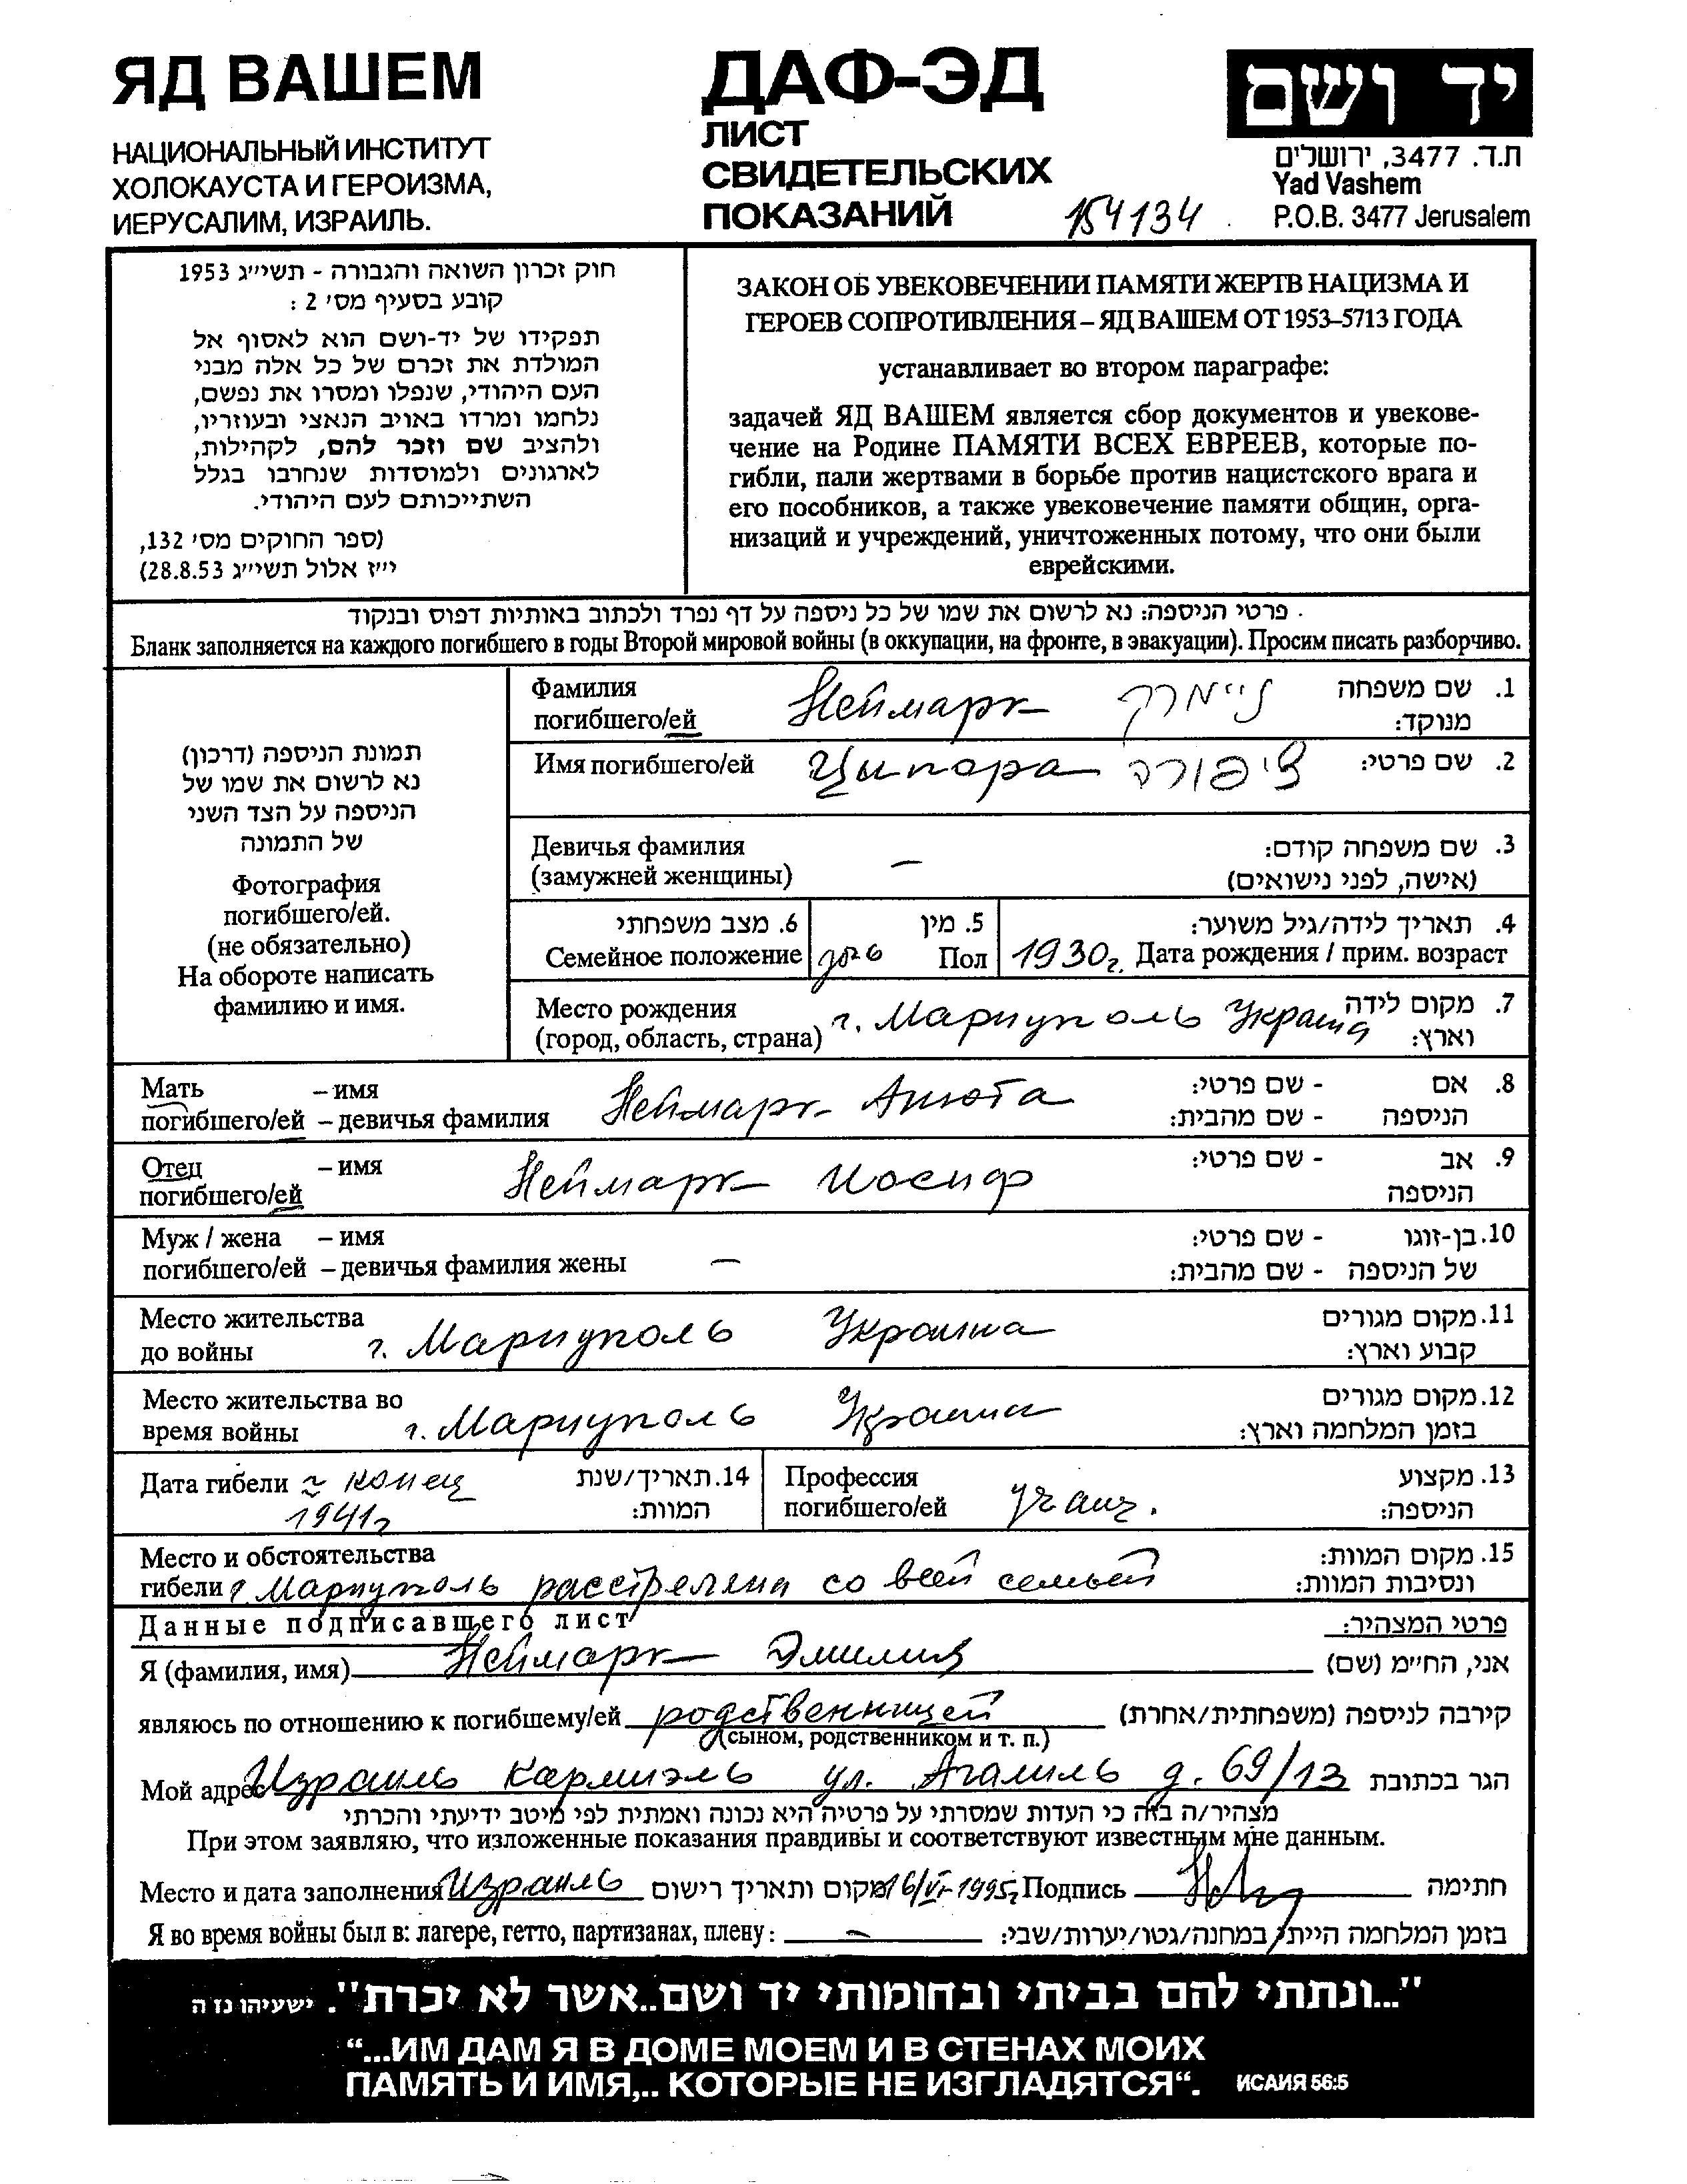 ЯД ВАШЕМ
НАЦИОНАЛЬНЫЙ ИНСТИТУТ
ХОЛОКАУСТА И ГЕРОИЗМА,
ИЕРУСАЛИМ, ИЗРАИЛЬ.
ДАФ-ЭД
ЛИСТ
СВИДЕТЕЛЬСКИХ
ПОКАЗАНИЙ 154134
יד ושם
ת.ד. 3477, ירושלים
Yad Vashem
P.O.B. 3477 Jerusalem
חוק זכרון השואה והגבורה - תשי״ג 1953
קובע בסעיף מס׳ 2 :
תפקידו של יד-ושם הוא לאסוף אל
המולדת את זכרם של כל אלה מבני
העם היהודי, שנפלו ומסרו את נפשם,
נלחמו ומרדו באויב הנאצי ובעוזריו,
ולהציב שם וזכר להם, לקהילות,
לארגונים ולמוסדות שנחרבו בגלל
השתייכותם לעם היהודי.
(ספר החוקים מס׳ 132,
י״ז אלול תשי״ג 28.8.53)
ЗАКОН ОБ УВЕКОВЕЧЕНИИ ПАМЯТИ ЖЕРТВ НАЦИЗМА И
ГЕРОЕВ СОПРОТИВЛЕНИЯ – ЯД ВАШЕМ ОТ 1953–5713 ГОДА
устанавливает во втором параграфе:
задачей ЯД ВАШЕМ является сбор документов и увекове-
чение на Родине ПАМЯТИ ВСЕХ ЕВРЕЕВ, которые по-
гибли, пали жертвами в борьбе против нацистского врага и
его пособников, а также увековечение памяти общин, орга-
низаций и учреждений, уничтоженных потому, что они были
еврейскими.
פרטי הניספה: נא לרשום את שמו של כל ניספה על דף נפרד ולכתוב באותיות דפוס ובנקוד
Бланк заполняется на каждого погибшего в годы Второй мировой войны (в оккупации, на фронте, в эвакуации). Просим писать разборчиво.
תמונת הניספה (דרכון)
נא לרשום את שמו של
הניספה על הצד השני
של התמונה
Фотография
погибшего/ей.
(не обязательно)
На обороте написать
фамилию и имя.
Фамилия
погибшего/ей Неймарк ניימרק
1. שם משפחה
מנוקד:
Имя погибшего/ей Ципора ציפורה 2. שם פרטי:
Девичья фамилия
(замужней женщины) –
3. שם משפחה קודם:
(אישה, לפני נישואים)
6. מצב משפחתי
Семейное положение
5. מין
Пол дочь
4. תאריך לידה/גיל משוער:
1930г. Дата рождения / прим. возраст
Место рождения
(город, область, страна) г. Мариуполь Украина
7. מקום לידה
וארץ:
Мать – имя
погибшего/ей – девичья фамилия Неймарк Анюта
8. אם - שם פרטי:
הניספה - שם מהבית:
Отец – имя
погибшего/ей Неймарк Иосиф
9. אב - שם פרטי:
הניספה
Муж / жена – имя
погибшего/ей – девичья фамилия жены –
10. בן-זוגו - שם פרטי:
של הניספה - שם מהבית:
Место жительства
до войны г. Мариуполь Украина
11. מקום מגורים
קבוע וארץ:
Место жительства во
время войны г. Мариуполь Украина
12. מקום מגורים
בזמן המלחמה וארץ:
Дата гибели ≈ конец
1941г
14. תאריך/שנת
המוות:
Профессия
погибшего/ей учащ.
13. מקצוע
הניספה:
Место и обстоятельства
гибели г. Мариуполь расстреляна со всей семьей
15. מקום המוות:
ונסיבות המוות:
Данные подписавшего лист פרטי המצהיר:
Я (фамилия, имя) Неймарк Эмилия אני, החי״מ (שם)
являюсь по отношению к погибшему/ей родственницей קירבה לניספה (משפחתית/אחרת)
(сыном, родственником и т. п.)
Мой адрес Израиль Кармиэль ул. Агалиль д. 69/13 הגר בכתובת
מצהיר/ה בזה כי העדות שמסרתי על פרטיה היא נכונה ואמתית לפי מיטב ידיעתי והכרתי
При этом заявляю, что изложенные показания правдивы и соответствуют известным мне данным.
Место и дата заполнения Израиль מקום ותאריך רישום 16/VI-1995г Подпись חתימה
Я во время войны был в: лагере, гетто, партизанах, плену: – בזמן המלחמה הייתי במחנה/גטו/יערות/שבי:
"...ונתתי להם בביתי ובחומותי יד ושם..אשר לא יכרת". ישעיהו נז ה
“...ИМ ДАМ Я В ДОМЕ МОЕМ И В СТЕНАХ МОИХ
ПАМЯТЬ И ИМЯ,.. КОТОРЫЕ НЕ ИЗГЛАДЯТСЯ“. ИСАИЯ 56:5